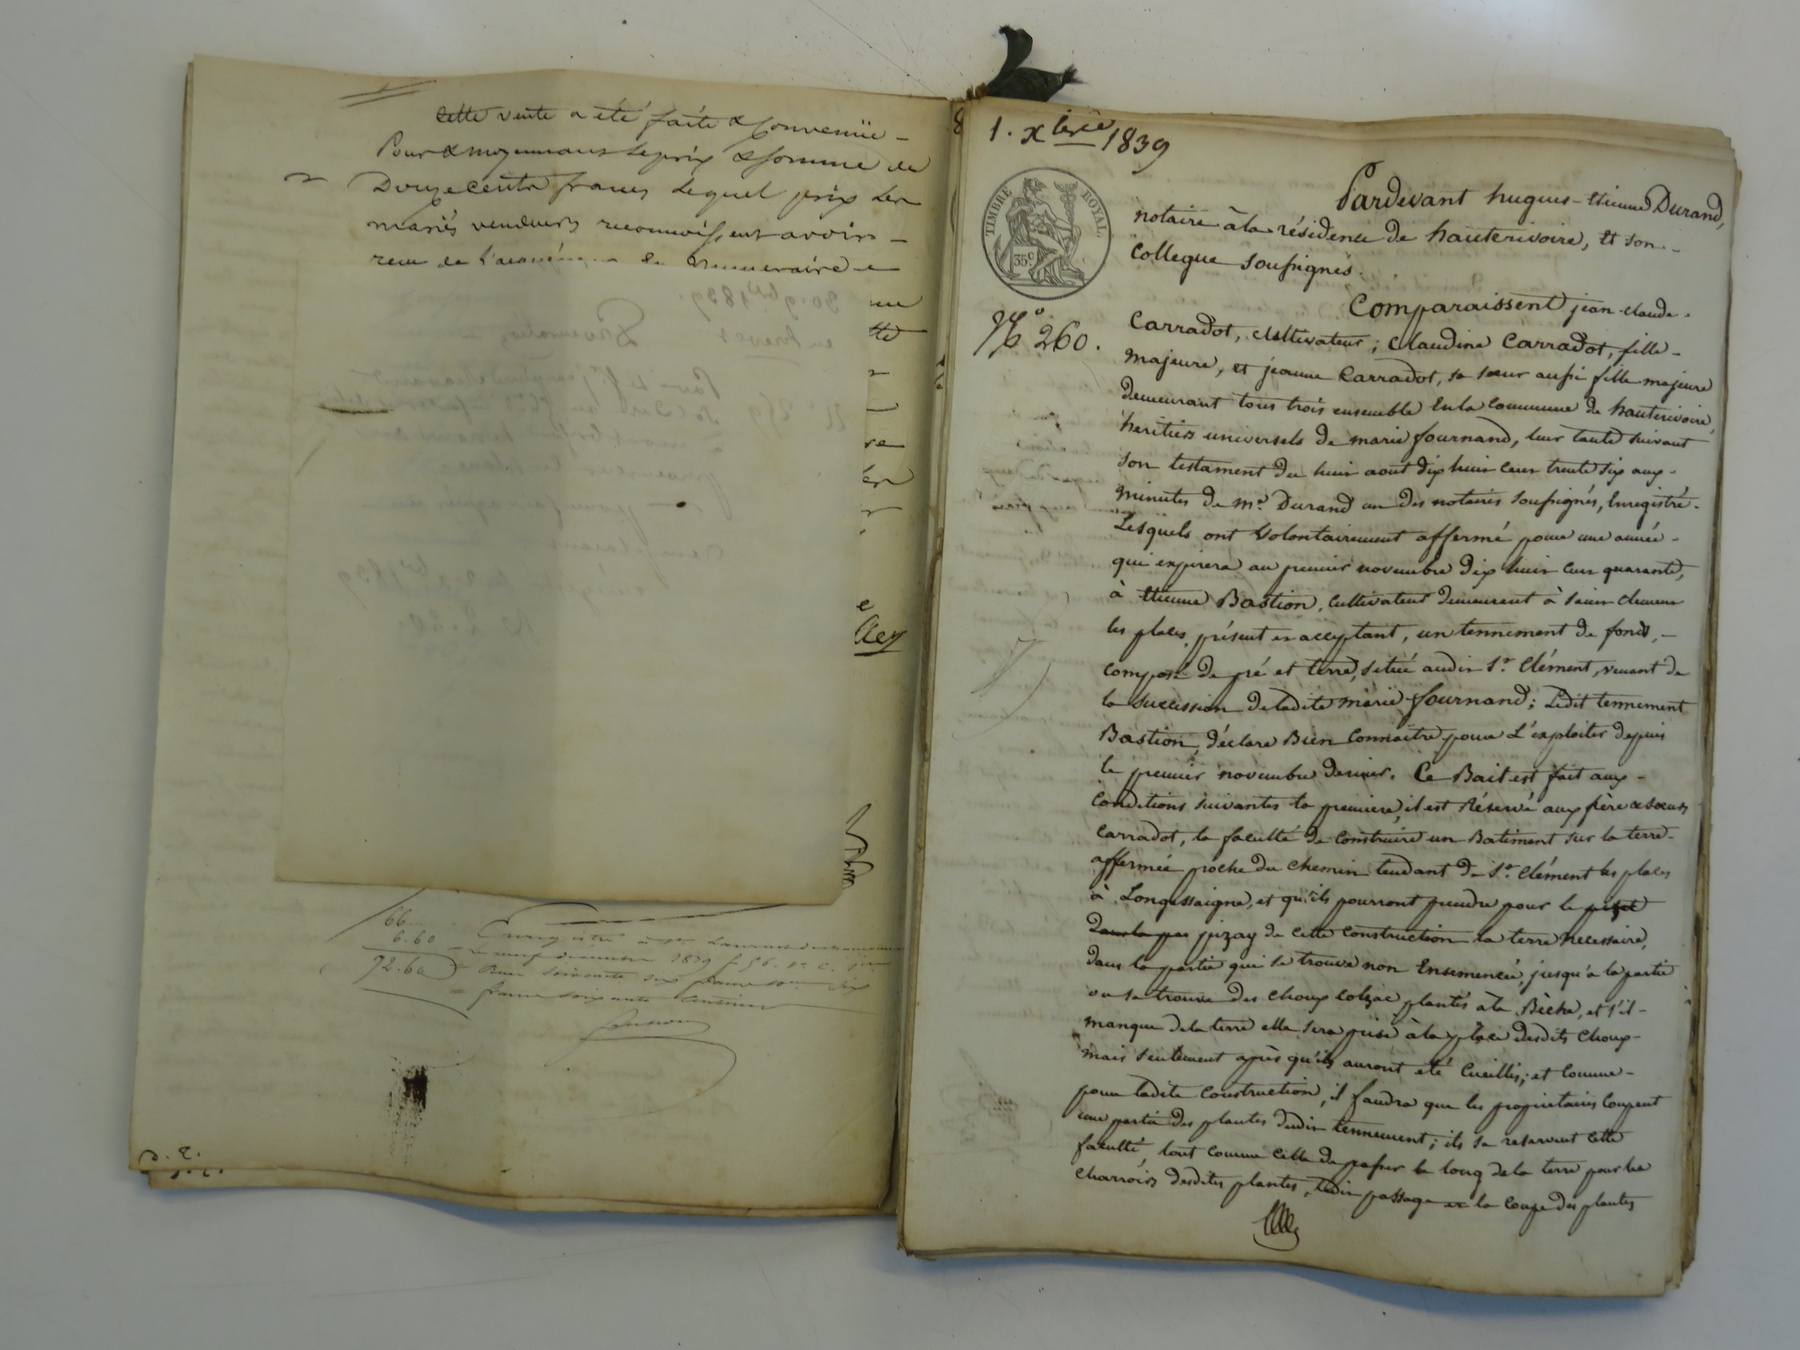 Cette vente a été faite & Convenüe -
Pour & moyennant le prix & somme de
Douze cents francs Lequel prix Les
mariés vendeurs reconnoissent avoir -
reçu de l'acquéreur en numeraire
66
6.60
72.60
Enregistré à St Laurent de chamousset
Le neuf décembre 1839 f. 56. v. c.
Reçu soixante six francs
francs soixante centimes
D. E.
1. Xbre 1839
TIMBRE ROYAL.
35c
Pardevant hugues-etienne Durand,
notaire à la résidence de hauterivoire, et son -
Collegue soussignés.
N° 260.
Comparaissent jean-claude -
Carradot, cultivateur ; Claudine Carradot, fille -
majeure, et jeanne Carradot, sa sœur aussi fille majeure
demeurant tous trois ensemble en la Commune de hauterivoire,
heritiers universels de marie fournand, leur tante suivant
son testament du huit aout dix huit cent trente six aux -
minutes de me. Durand un des notaires soussignés, Enregistré -
Lesquels ont Volontairement affermé pour une année -
qui expirera au premier novembre dix huit cent quarante,
à Etienne Bastion, Cultivateur demeurant à saint clement
les places, présent et acceptant, un tennement de fonds, -
composé de pré et terre, situé audit St. Clément, venant de
la succession de ladite marie fournand ; Ledit tennement
Bastion, déclare Bien Connaitre pour L'exploiter depuis
le premier novembre dernier. Ce Bail est fait aux -
Conditions suivantes la premiere, il est Réservé aux frère & sœurs
Carradot, la faculté de Construire un Batiment sur la terre -
affermée proche du chemin tendant de St. Clément les places
à Longessaigne, et qu'ils pourront prendre pour le
pizay de cette construction la terre necessaire,
dans la partie qui se trouve non Ensemencée, jusqu'a la partie
ou se trouve des choux Colzac plantés à la Bèche, et s'il -
manque de la terre elle sera prise à la place desdits Choux -
mais seulement après qu'ils auront été Cueillis ; et Comme -
pour ladite construction, il faudra que les propriétaires Coupent
une partie des plantes dudit tennement ; ils se réservent Cette
faculté, tout comme Celle de passer le long de la terre pour les
Charrois desdites plantes, ledit passage et la Coupe des plantes